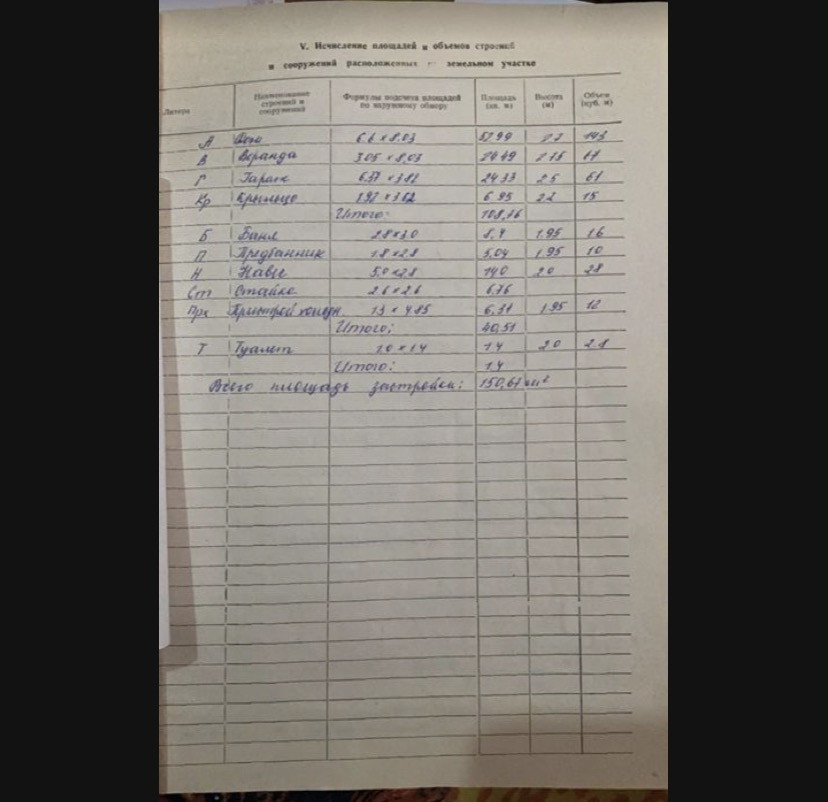 V. Исчисление площадей и объемов строений
и сооружений расположенных на земельном участке
Литера Наименование строений и сооружений Формулы подсчета площадей по наружному обмеру Площадь (кв. м) Высота (м) Объем (куб. м)
А 6.6 × 8.03 2.7 143
В Веранда 3.05 × 8.03 24.49 2.75
Г Гараж 6.37 × 3.82 24.33 2.5 61
Кр Крыльцо 1.92 × 3.62 6.95 2.2 15
Итого: 108,76
Б Баня 2.8 × 3.0 8,4 1.95 16
П Предбанник 1.8 × 2.8 5,04 1.95 10
Н Навес 5.0 × 2.8 14.0 2.0 28
Ст Стайка 2.6 × 2.6 6,76
Прх Пристрой 1.3 × 4.85 6,31 1.95 12
Итого: 40,51
Т Туалет 1.0 × 1.4 1.4 2.0 2.8
Итого: 1.4
Всего площадь застройки: 150,67 м²